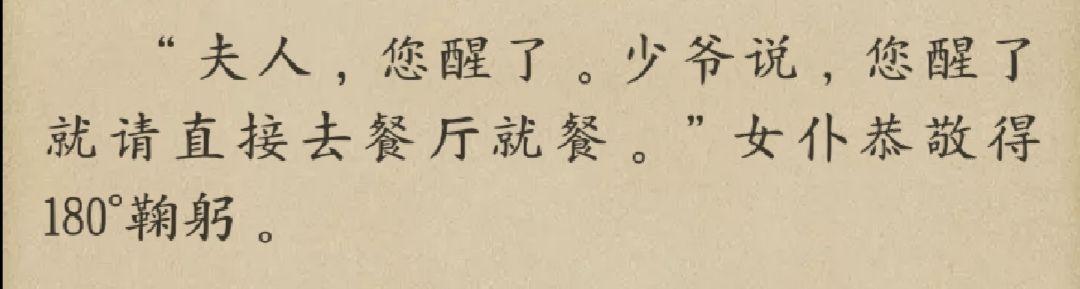 “夫人，您醒了。少爷说，您醒了
就请直接去餐厅就餐。”女仆恭敬得
180°鞠躬。